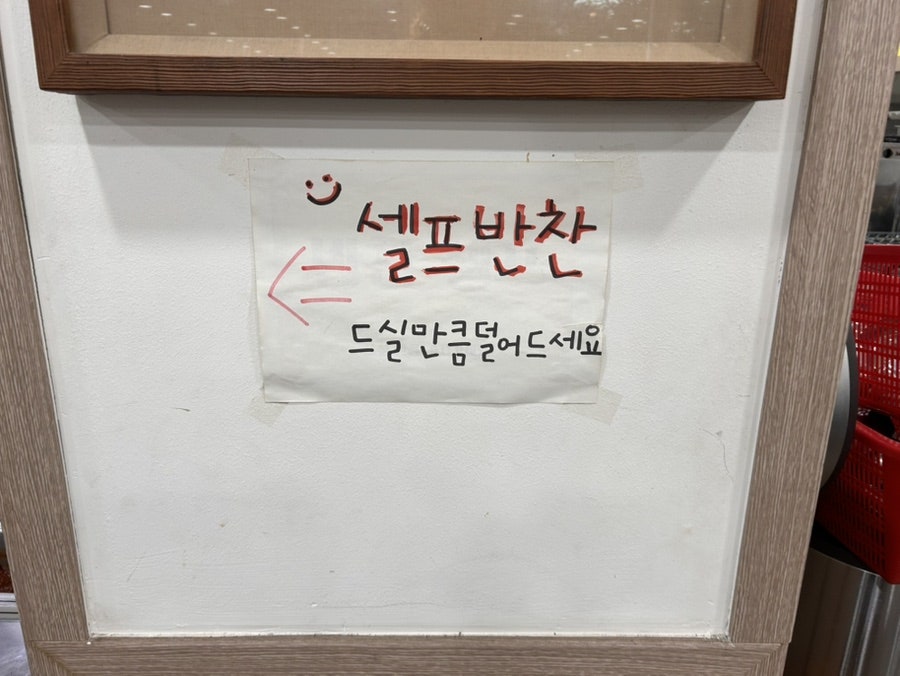 셀프반찬
드실만큼덜어드세요